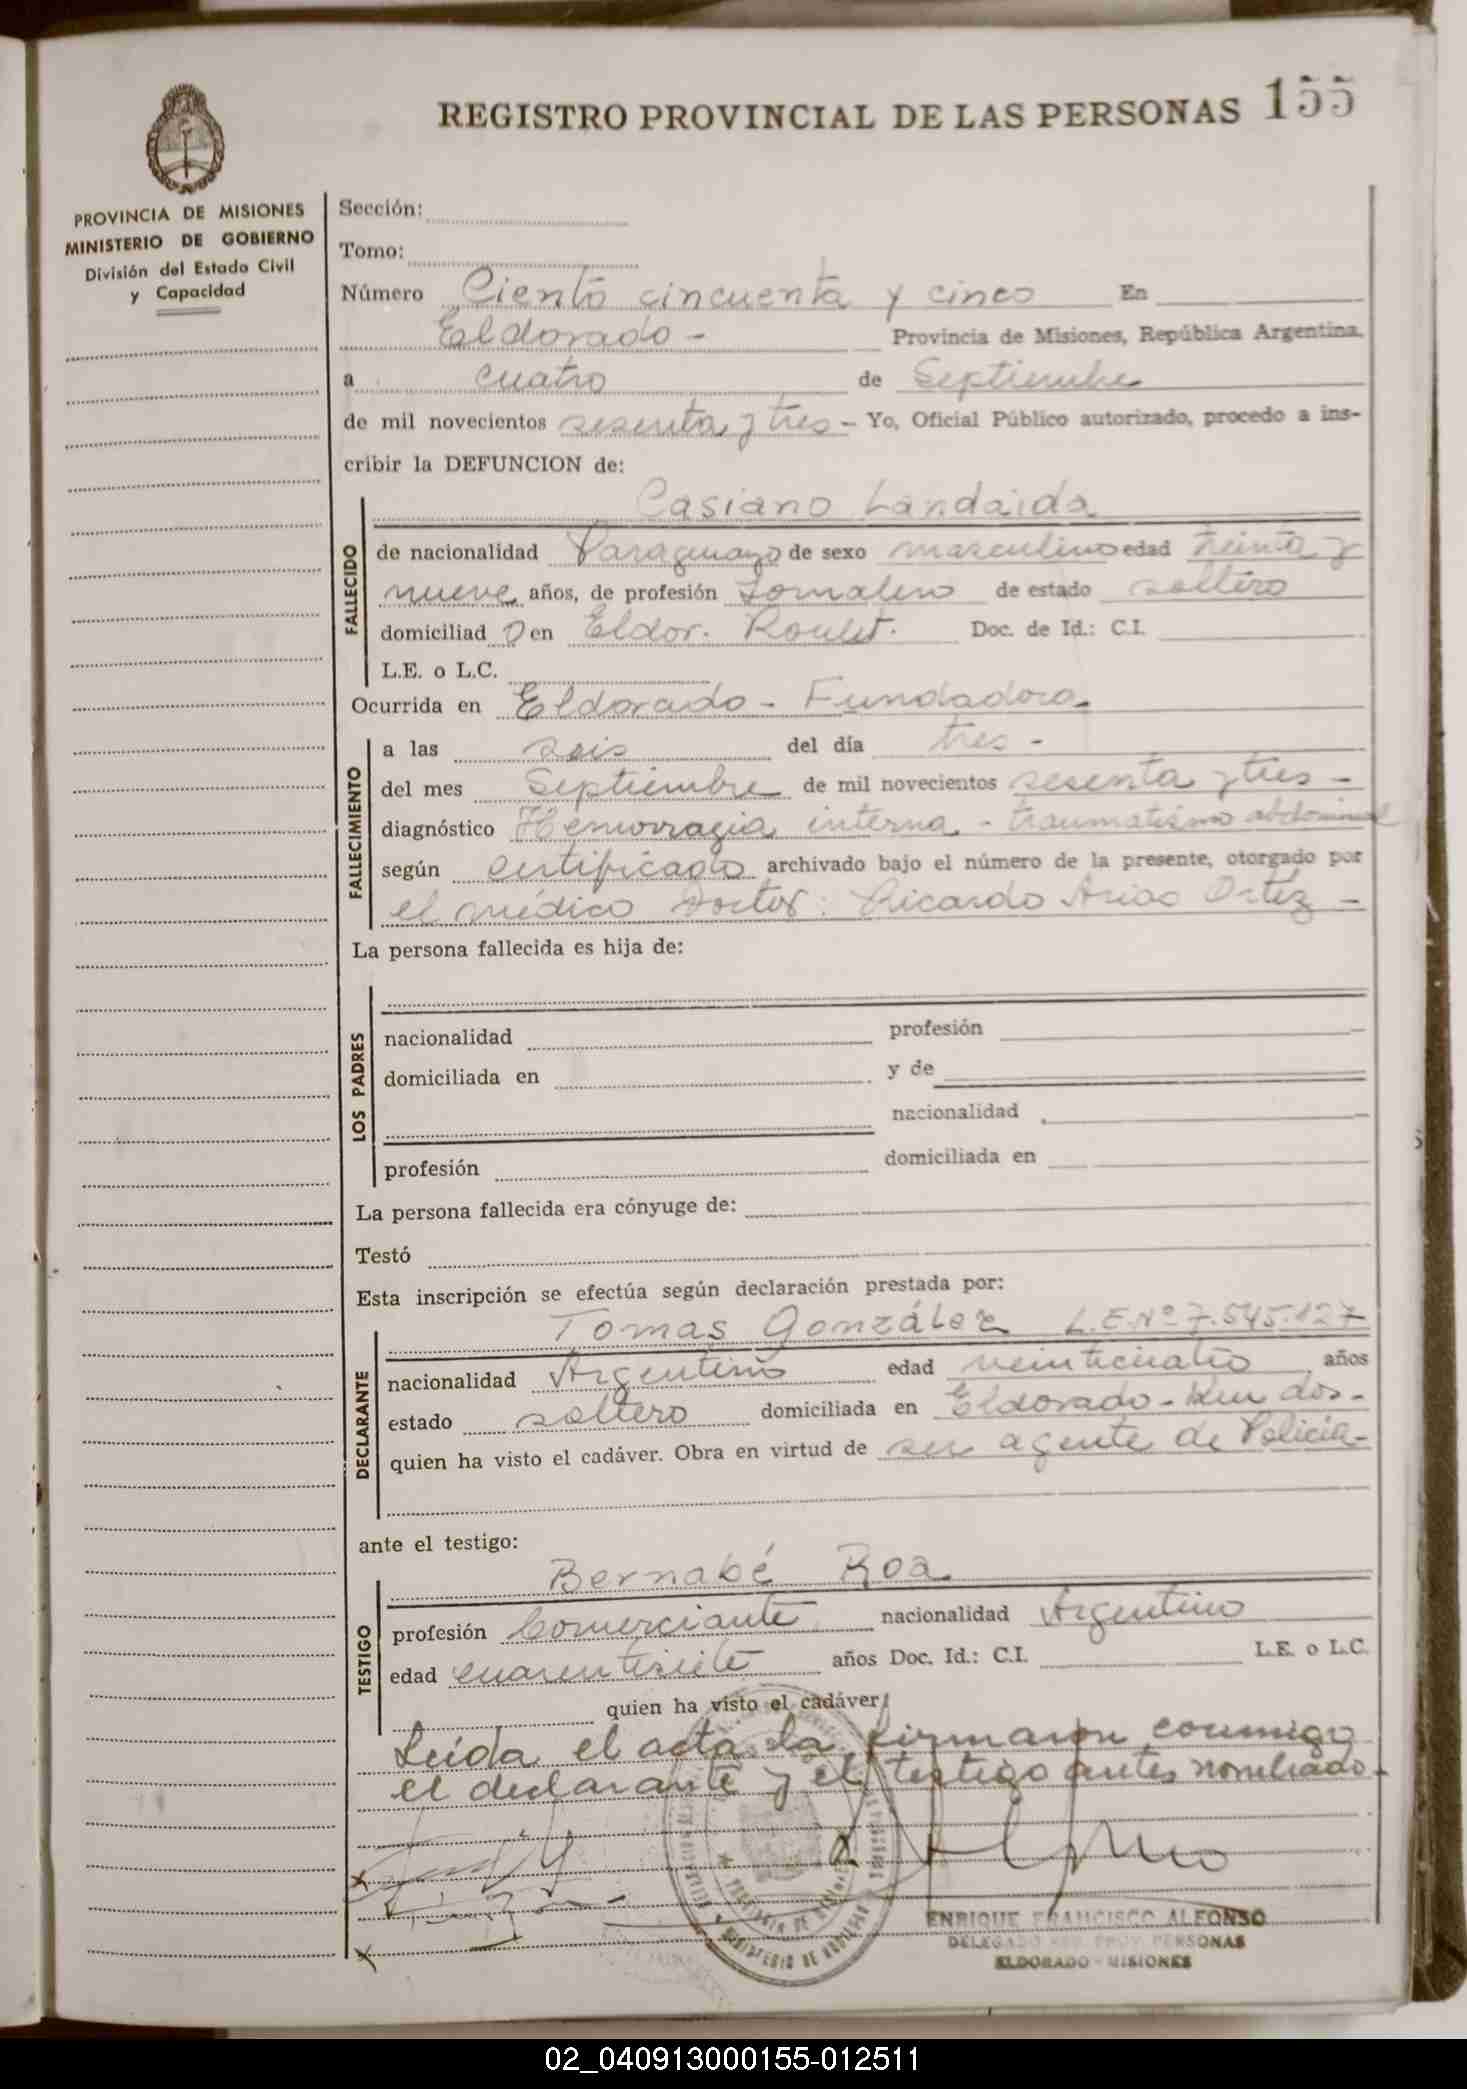 REGISTRO PROVINCIAL DE LAS PERSONAS 155
PROVINCIA DE MISIONES
MINISTERIO DE GOBIERNO
División del Estado Civil
y Capacidad
Sección:
Tomo:
Número Ciento cincuenta y cinco En
Eldorado - Provincia de Misiones, República Argentina,
a cuatro de Septiembre
de mil novecientos sesenta y tres - Yo, Oficial Público autorizado, procedo a ins-
cribir la DEFUNCION de:
Casiano Landaida
FALLECIDO
de nacionalidad Paraguayo de sexo masculino edad treinta y
nueve años, de profesión Jornalero de estado soltero
domiciliad o en Eldor. Doc. de Id.: C.I.
L.E. o L.C.
Ocurrida en Eldorado - Fundadora
FALLECIMIENTO
a las seis del día tres -
del mes Septiembre de mil novecientos sesenta y tres -
diagnóstico Hemorragia interna - traumatismo abdominal
según certificado archivado bajo el número de la presente, otorgado por
el médico Doctor: Ricardo Arias Ortíz -
La persona fallecida es hija de:
LOS PADRES
nacionalidad profesión
domiciliada en y de
nacionalidad
profesión domiciliada en
La persona fallecida era cónyuge de:
Testó
Esta inscripción se efectúa según declaración prestada por:
Tomas González L.E.Nº 7.545.127
DECLARANTE
nacionalidad Argentino edad veinticuatro años
estado soltero domiciliada en Eldorado - Km dos -
quien ha visto el cadáver. Obra en virtud de ser agente de Policía -
ante el testigo:
Bernabé Roa
TESTIGO
profesión Comerciante nacionalidad Argentino
edad cuarentisiete años Doc. Id.: C.I. L.E. o L.C.
quien ha visto el cadáver
Leída el acta la firmaron conmigo
el declarante y el testigo antes nombrado -
ENRIQUE FRANCISCO ALFONSO
DELEGADO REG. PROV. PERSONAS
ELDORADO - MISIONES
02_040913000155-012511